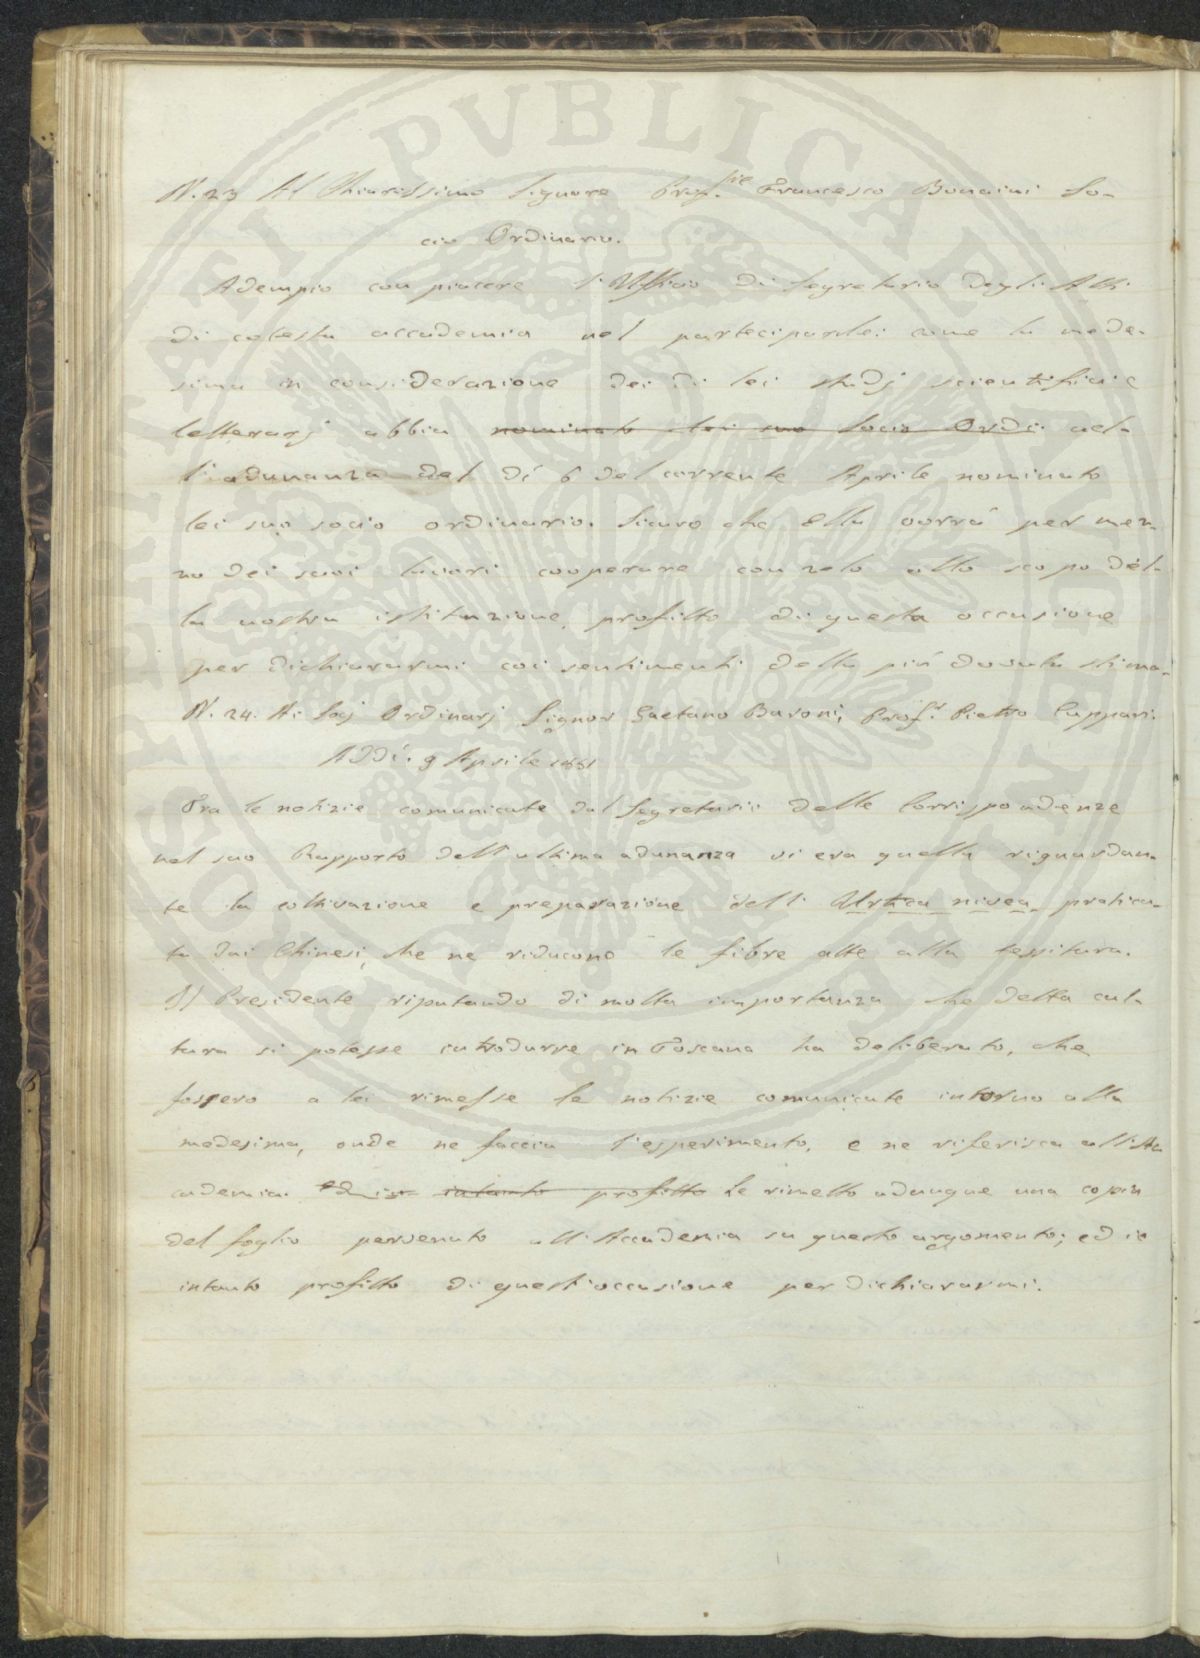 N. 23 Al Chiarissimo Signore Prof.re Francesco Bonaini So-
cio Ordinario.
Adempio con piacere l'Uffizio di Segretario degli Atti
di cotesta accademia nel parteciparlei come la mede-
sima in considerazione dei di lei studj scientifici e
letterarj abbia nominato lei suo Socio Ordi: nel-
l'adunanza del dí 6 del corrente Aprile nominato
lei suo socio ordinario. Sicuro che Ella vorrà per mez-
zo dei suoi lavori cooperare con zelo allo scopo del-
la nostra istituzione, profitto di questa occasione
per dichiararmi coi sentimenti della piú dovuta stima.
N. 24. Ai Socj Ordinarj Signor Gaetano Baroni, Prof.r Pietro Cuppari.
Addí. 9 Aprile 1851
Fra le notizie comunicate dal Segretario delle Corrispondenze
nel suo Rapporto dell'ultima adunanza vi era quella riguardan-
te la coltivazione e preparazione dell' Urtica nivea pratica-
ta dai Chinesi, che ne riducono le fibre atte alla tessitura.
Il Presidente riputando di molta importanza che detta cul-
tura si potesse introdurre in Toscana ha deliberato, che
fossero a lei rimesse le notizie comunicate intorno alla
medesima, onde ne faccia l'esperimento, e ne riferisca all'Ac
cademia. Ed io intanto profitto Le rimetto adunque una copia
del foglio pervenuto all'Accademia su questo argomento; ed io
intanto profitto di quest'occasione per dichiararmi.
PVBLICAE VTILITATI